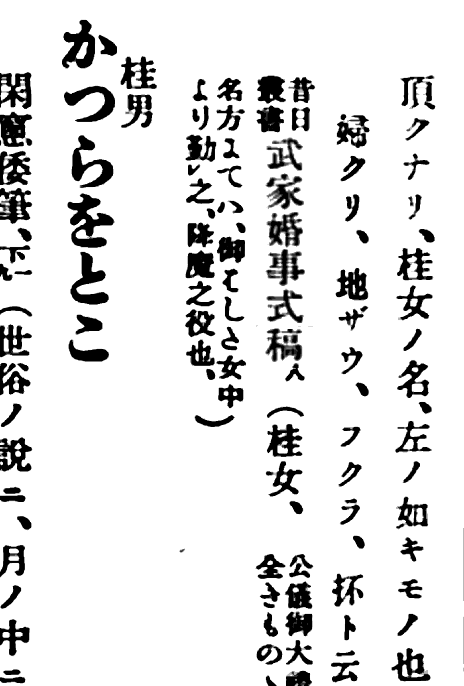 頂クナリ、桂女ノ名、左ノ如キモノ也
婦クリ、地ザウ、フクラ、抔ト云
昔日叢書 武家婚事式稿八(桂女、公儀御大禮
全きもの、
名方にてハ、御はしさ女中
より勤レ之、降魔之役也、)
桂男
かつらをとこ
閑窻倭筆、下ノ一(世俗ノ說ニ、月ノ中ニ